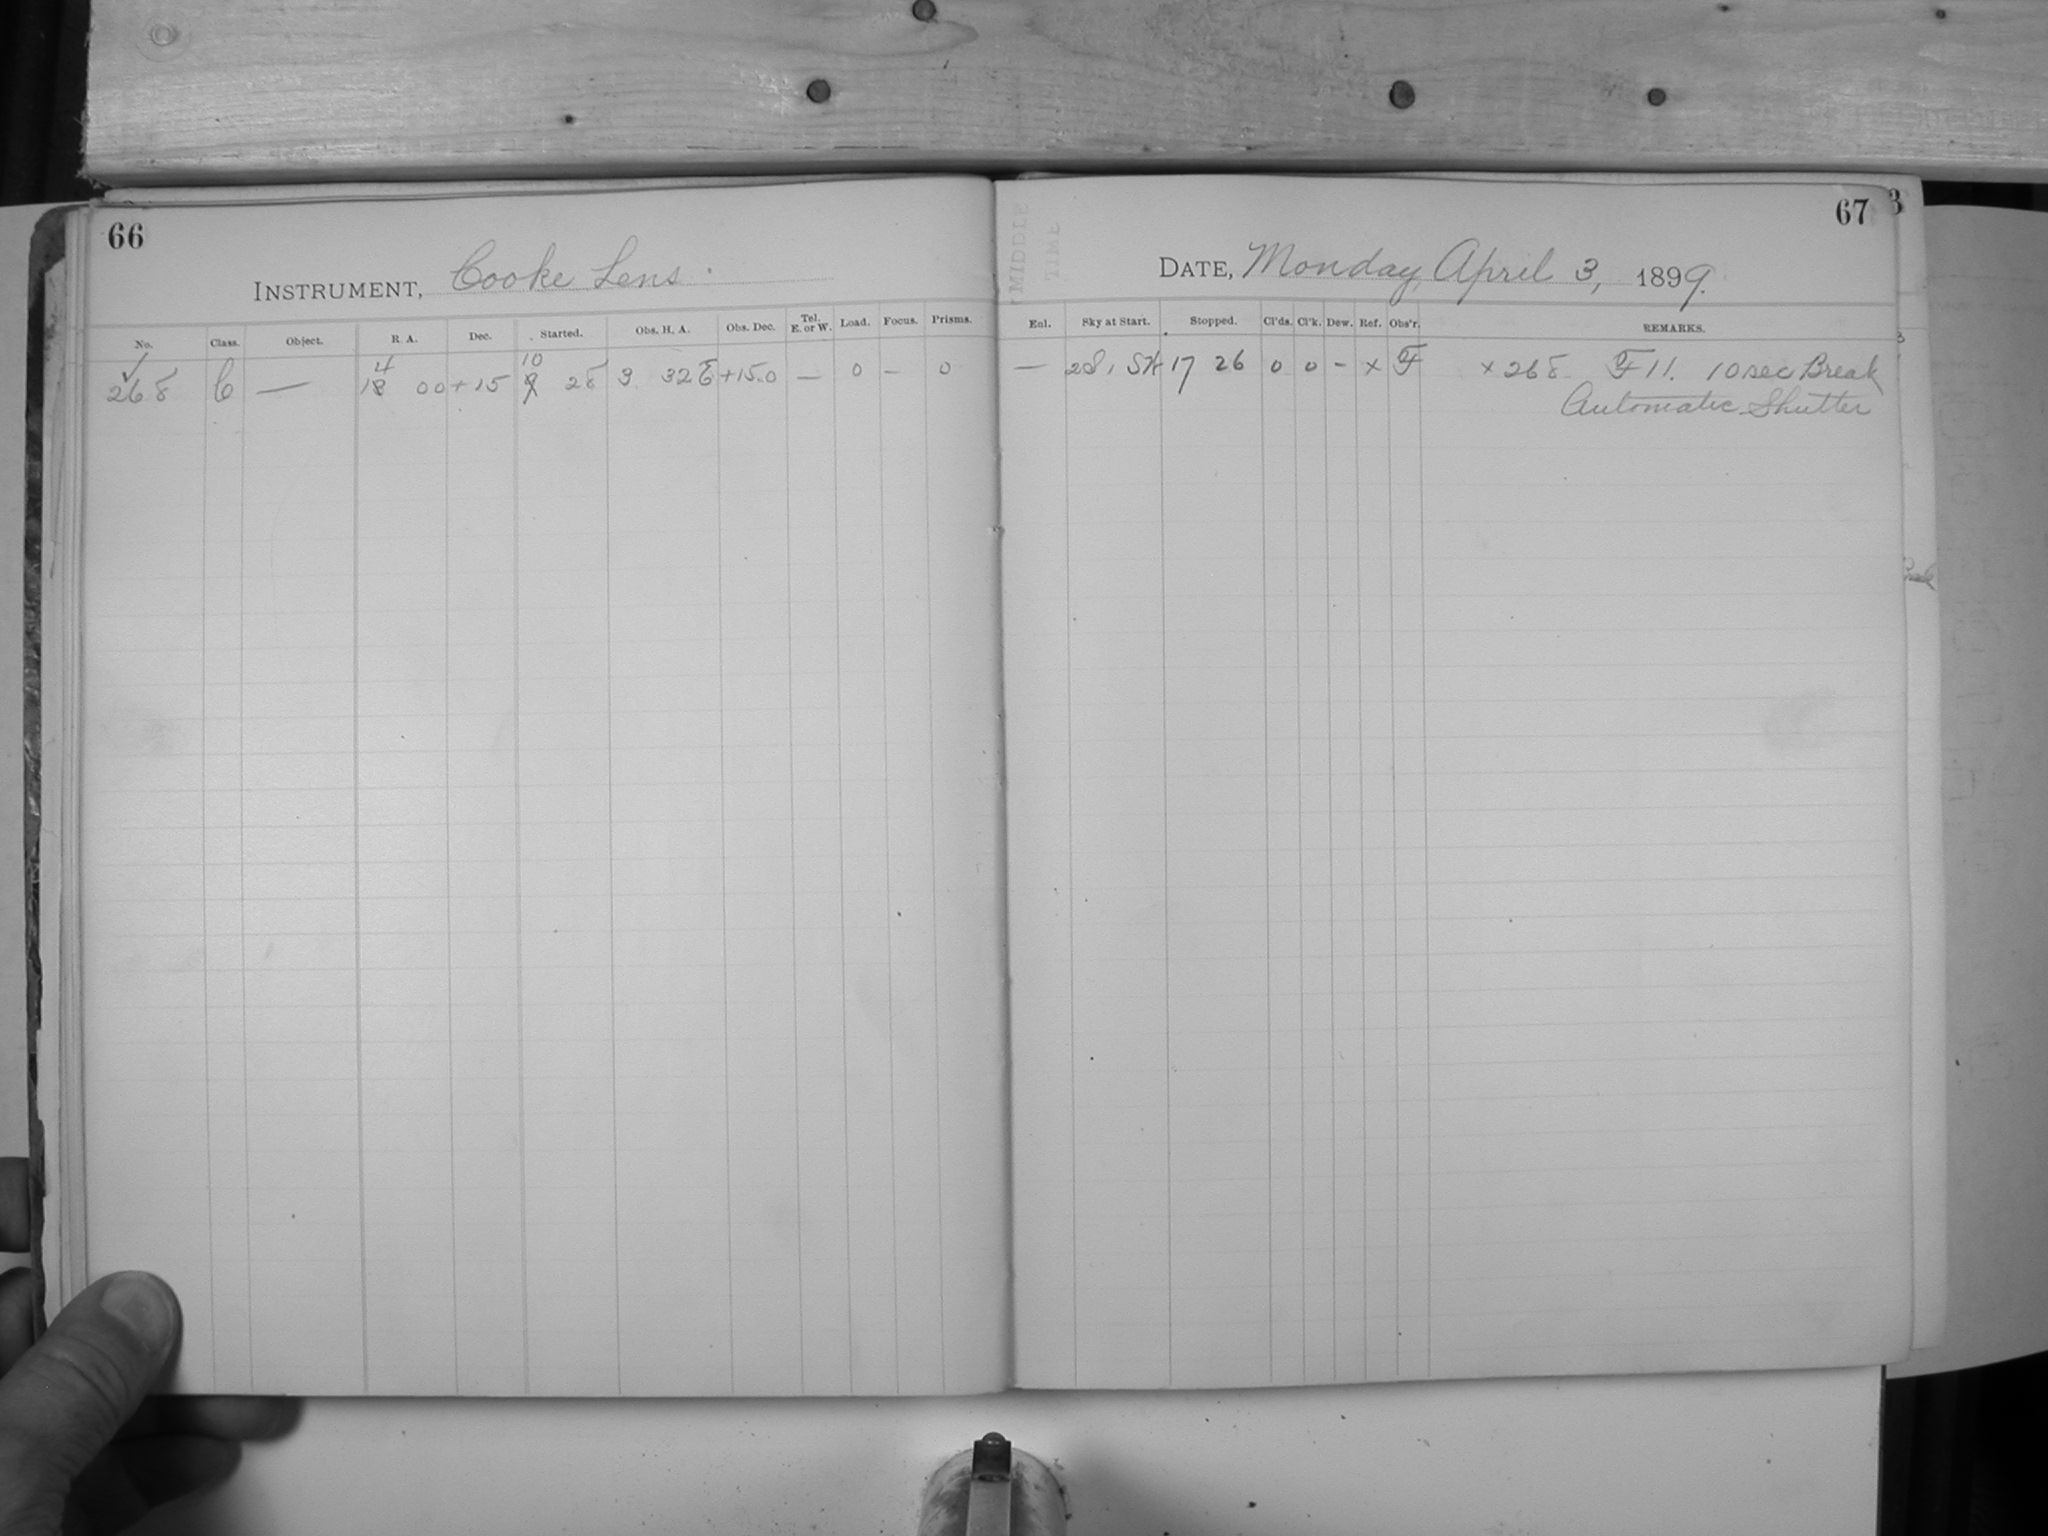 66
INSTRUMENT, Cooke Lens.
No. Class. Object. R. A. Dec. Started. Obs. H. A. Obs. Dec. Tel. E. or W. Load. Focus. Prisms.
✓ 4 10
C — 00 +15 9 3 +15.0 — 0 – 0
MIDDLE
TIME
67
DATE, Monday, April 3, 1899.
Enl. Sky at Start. Stopped. Cl'ds. Cl'k. Dew. Ref. Obs'r. REMARKS.
— 17 26 0 0 – × F × F 11. 10 sec Break
Automatic Shutter
3